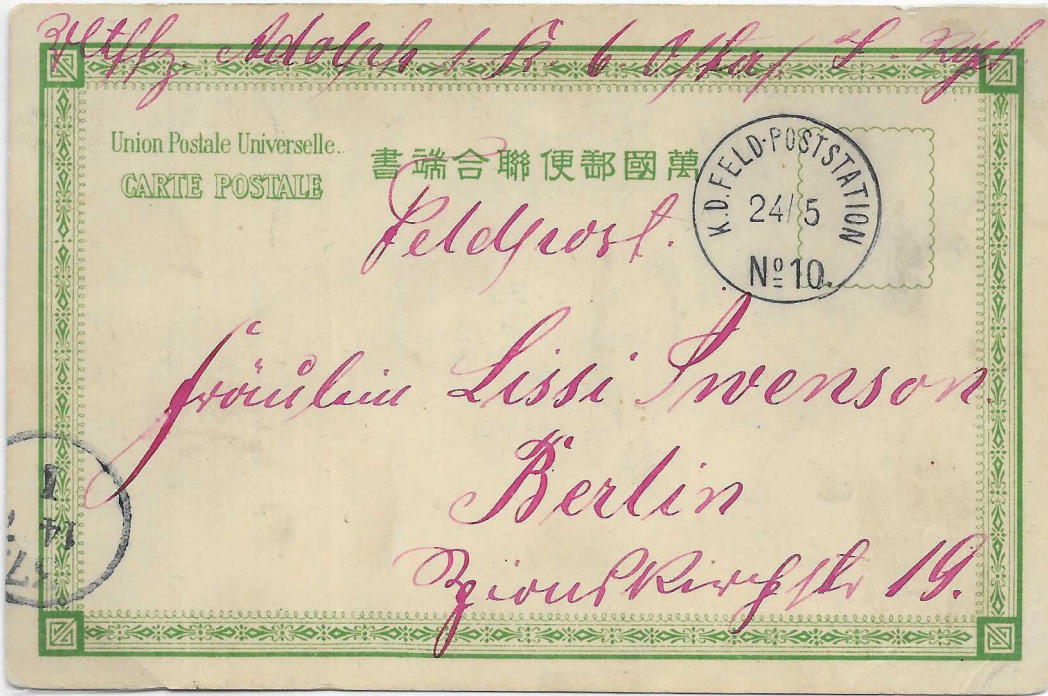 Uttfz. Adolph 1. K. 6. Ostas. I. Rgt.
Union Postale Universelle.
CARTE POSTALE
書端合聯便郵國萬
K.D. FELD-POSTSTATION
24/5
No 10.
Feldpost.
Fräulein Lissi Swenson.
Berlin
Zionskirchstr 19.
14